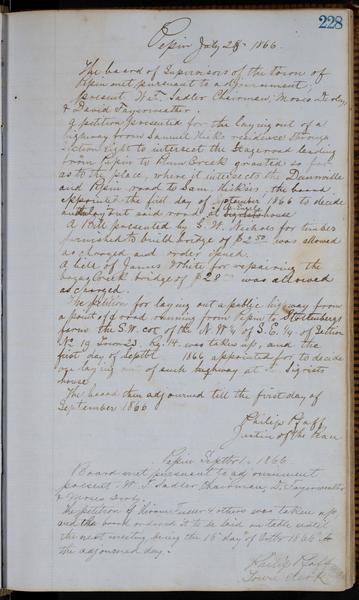 228
Pepin July 28th 1866.
The board of Supervisors of the town of
Pepin met pursuant to adjournment,
present W. T. Sadler Chairman, Moses
& David
A petition presented for the laying out of a
highway from Samuel Hicks residence through
Section eight to intersect the Stage road leading
from Pepin to Plum Creek granted so far
as to the place, where it intersects the Dunnville
and Pepin road to Sam. Hickses, the board
appointed the first day of September 1866 to decide
on the laying out said road at house
A bill presented by G. W. Nichols for timber
furnished to build bridge of $2.50 was allowed
as charged and order issued.
A bill of James White for repairing the
Creek bridge of $2 was allowed
as charged.
The petition for laying out a public highway from
a point of road running from Pepin to
farm the S.W. cor of the N. W ¼ of S. E. ¼ of Section
No 19 Town 23. Rg. 14. was taken up, and the
first day of Septbr 1866, appointed for to decide
on laying out of such highway at
house
The board then adjourned till the first day of
September 1866
Philip Pfaff
Justice of the Peace
Pepin Septbr 1. 1866
Board met pursuant to adjournment
present W. T. Sadler Chairman, D.
& Moses
The petition of & others was taken up
and the board ordered it to be laid on table until
the next meeting being the 15 day of Octbr 1866 to
the adjourned day.
Philip Pfaff
Town Clerk